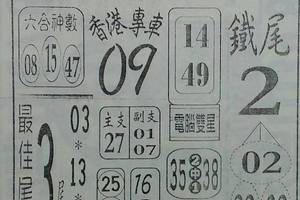 六合神數
08 15 47
香港專車
09
14
49
鐵尾
2
02
最佳尾
3尾
03
*
13
*
主支
27
副支
01
07
電腦雙星
35 2中1 38
25
16